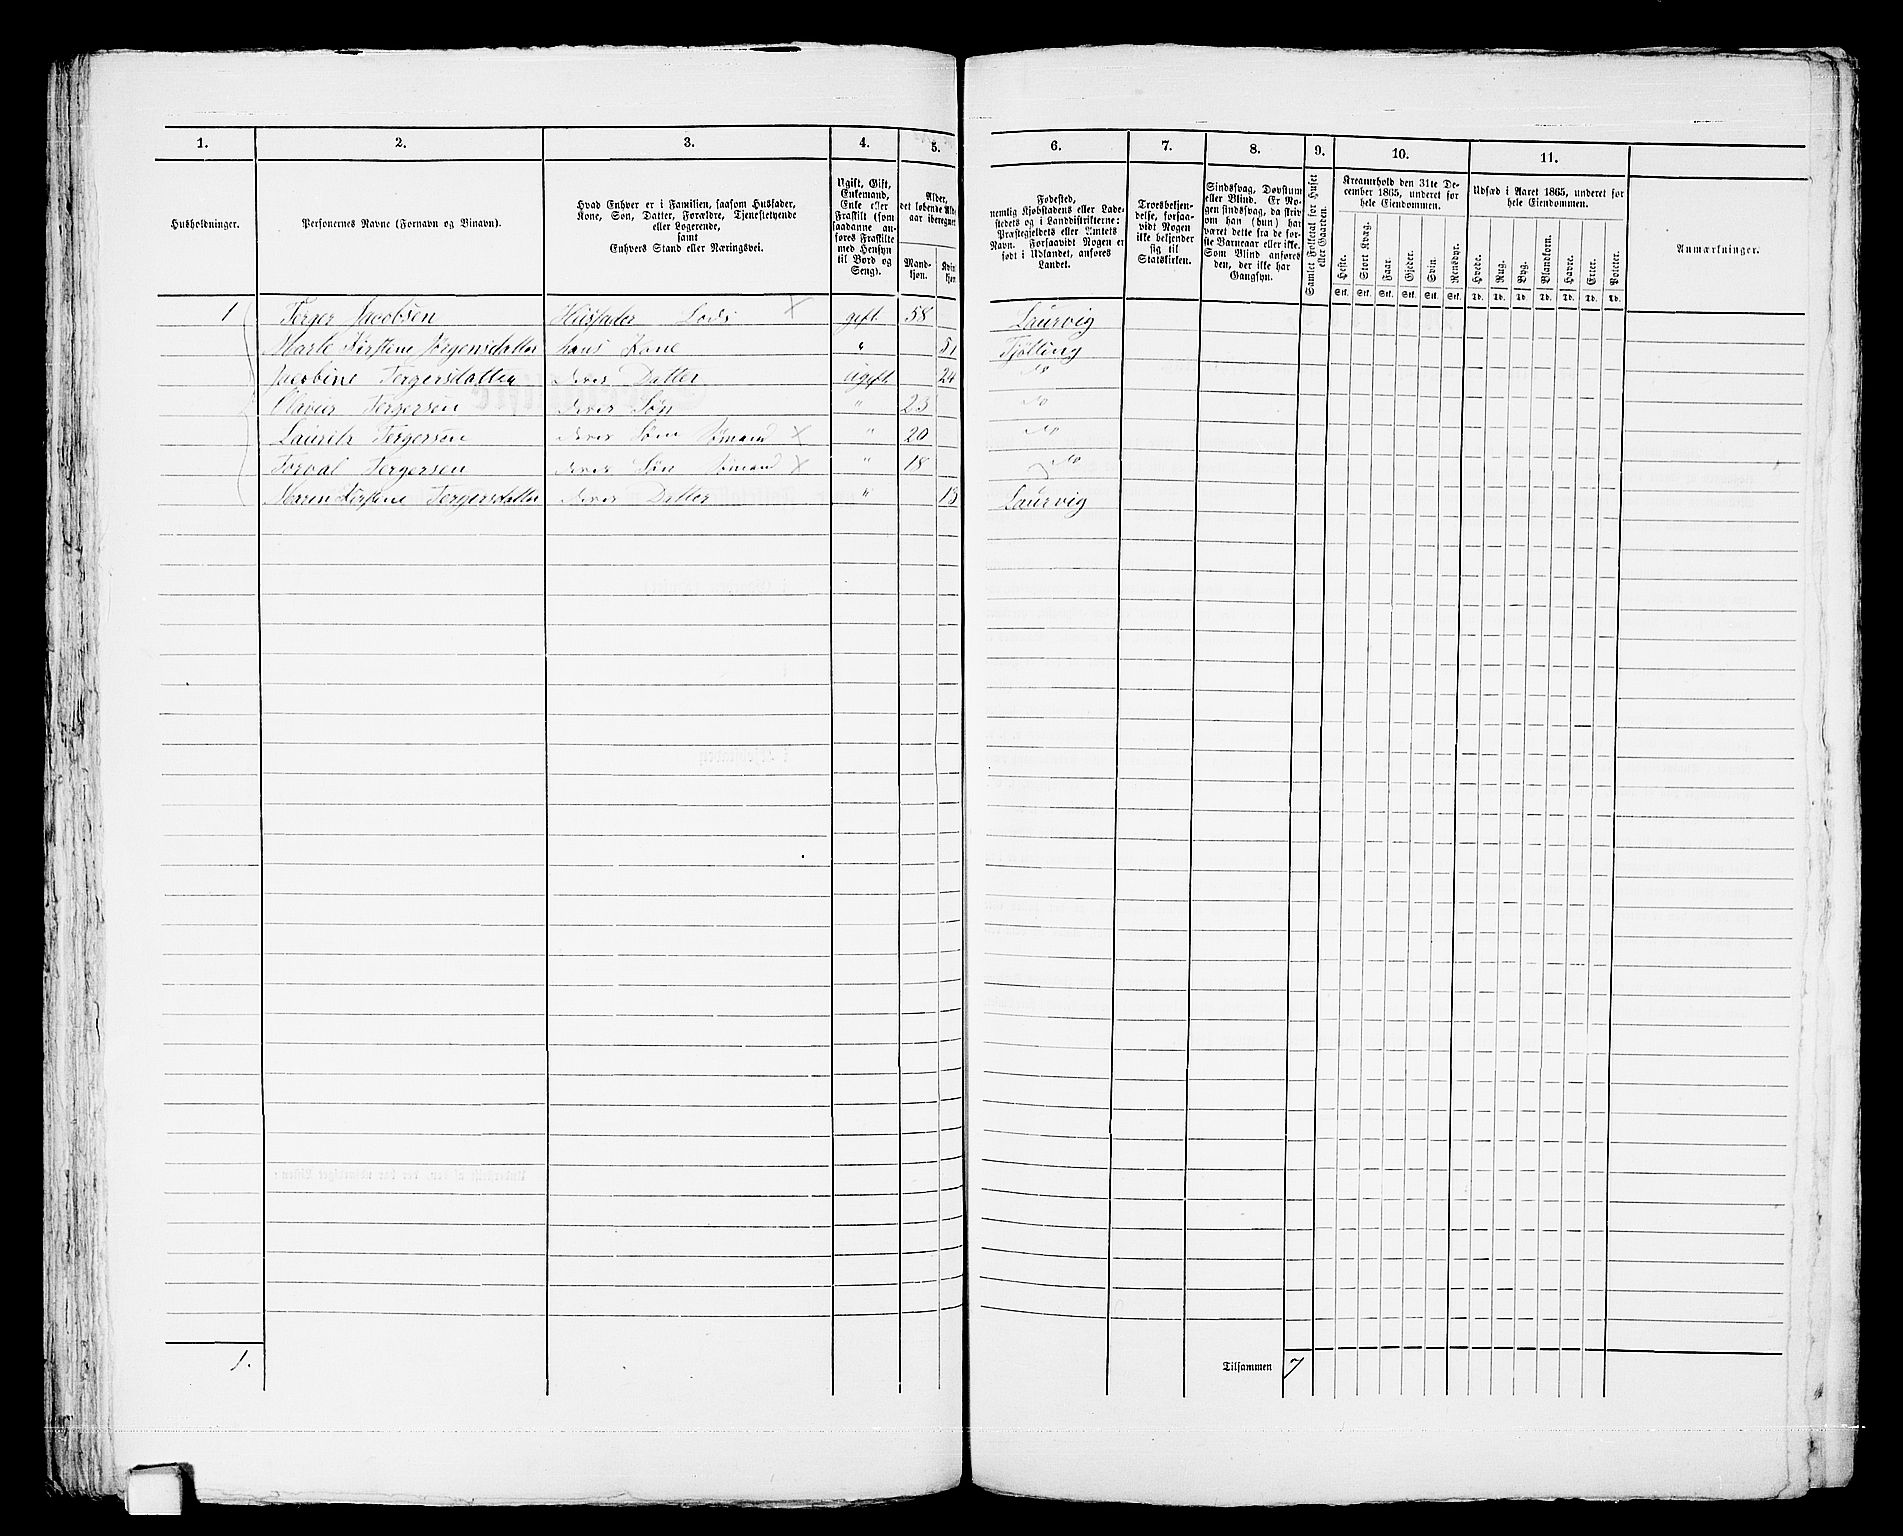 1. 2. 3. 4. 5. 6. 7. 8. 9. 10. 11.
Husholdninger.
Personernes Navne (Fornavn og Vinavn).
Hvad Enhver er i Familien, saasom Husfader,
Kone, Søn, Datter, Forældre, Tjenestetyende
eller Logerende,
samt
Enhvers Stand eller Næringsvei.
Ugift, Gift,
Enkemand,
Enke eller
Fraskilt (som
saadanne an-
føres Fraskilte
med Hensyn
til Bord og
Seng).
Alder,
det løbende Ald-
aar iberegnet
Mand-
kjøn.
Kvin
kjøn
Fødested,
nemlig Kjøbstadens eller Lade-
stedets og i Landdistrikterne:
Præstegjeldets eller Amtets
Navn. Forsaavidt Nogen er
født i Udlandet, anføres
Landet.
Troesbekjen-
delse, forsaa-
vidt Nogen
ikke bekjender
sig til
Statskirken.
Sindssvag, Døvstum
eller Blind. Er No-
gen sindssvag, da skriv
om han (hun) har
været dette fra de før-
ste Barneaar eller ikke.
Som Blind anføres
den, der ikke har
Gangsyn.
Samlet Folketal for Huset
eller Gaarden.
Kreaturhold den 31te De-
cember 1865, underet for
hele Eiendommen.
Heste. Stort Kvæg. Faar. Gjeder. Svin. Rensdyr.
Stk. Stk. Stk. Stk. Stk. Stk.
Udsæd i Aaret 1865, underet for
hele Eiendommen.
Hvede. Rug. Byg. Blandkorn. Havre. Erter. Poteter.
Td. Td. Td. Td. Td. Td. Td.
Anmærkninger.
1 Terger Jacobsen Huusfader Lods X gift 58 Laurvig
Marte Kirstine Jørgensdatter hans Kone " 51 Tjølling
Jacobine Tergersdatter deres Datter ugift 24 Do
Olavus Tergersen deres Søn " 23 Do
Laurits Tergersen deres Søn Sømand X " 20 Do
Torval Tergersen deres Søn Sømand X " 18 Do
Maren Kirstine Tergersdatter deres Datter " 13 Laurvig
1. Tilsammen 7